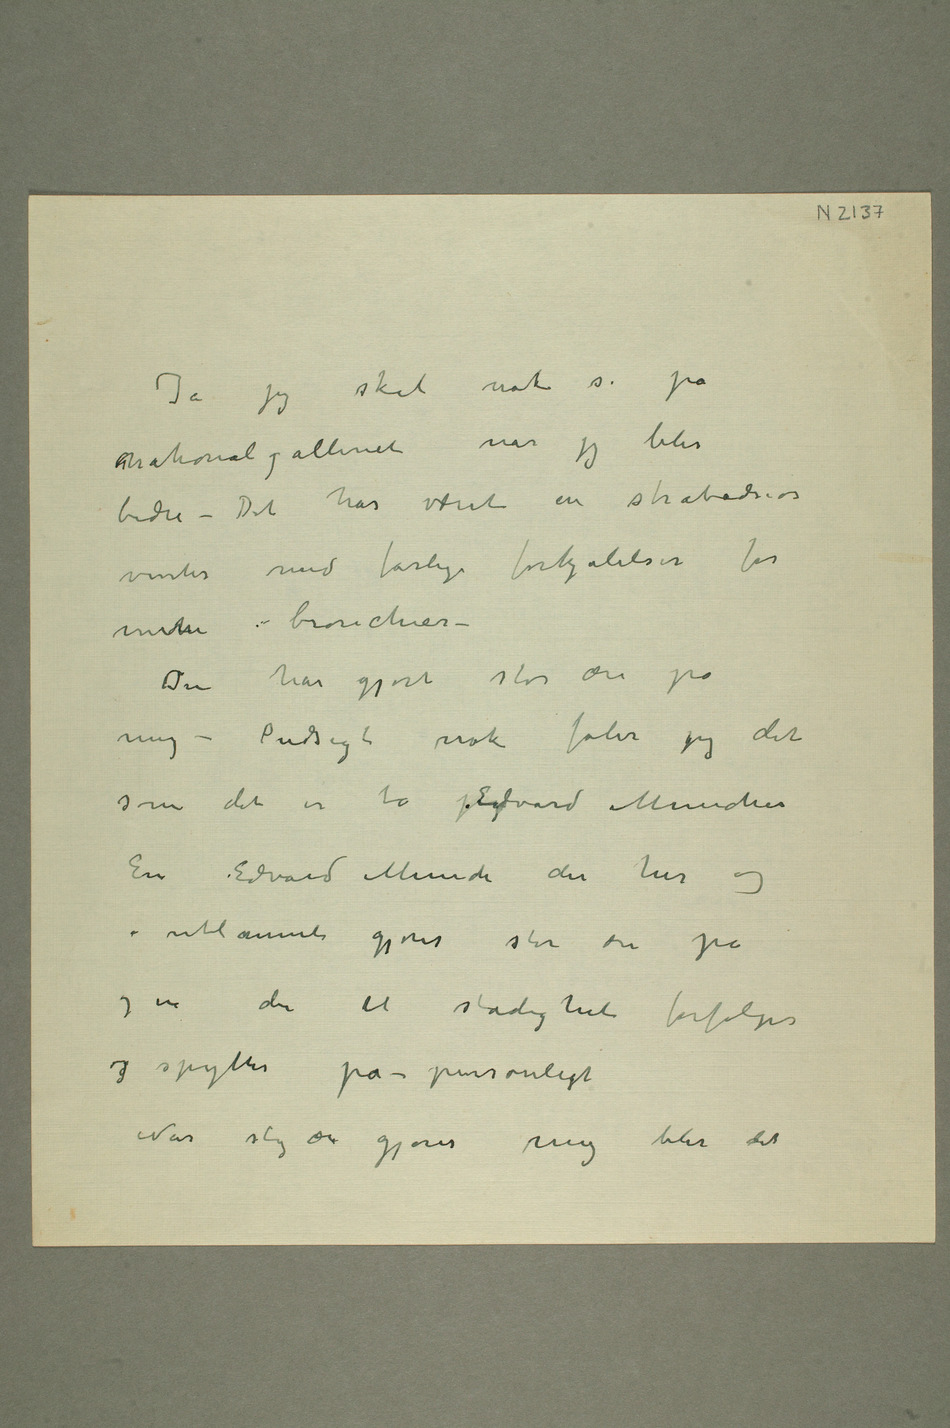 N 2137
Ja jeg skal nok se på
nationalgalleriet når jeg blir
bedre – Det har været en strabadsiøs
vinter med farlige forkjølelser for
mine bronchier –
Den har gjort stor ære på
mig – Pudsigt nok føler jeg det
som det er to Edvard Muncher
En Edvard Munch der her og
i utlannet gjøres stor ære på
og en der til stadighet forfølges
og spyttes på – personligt
Når slig ære gjøres mig blir det